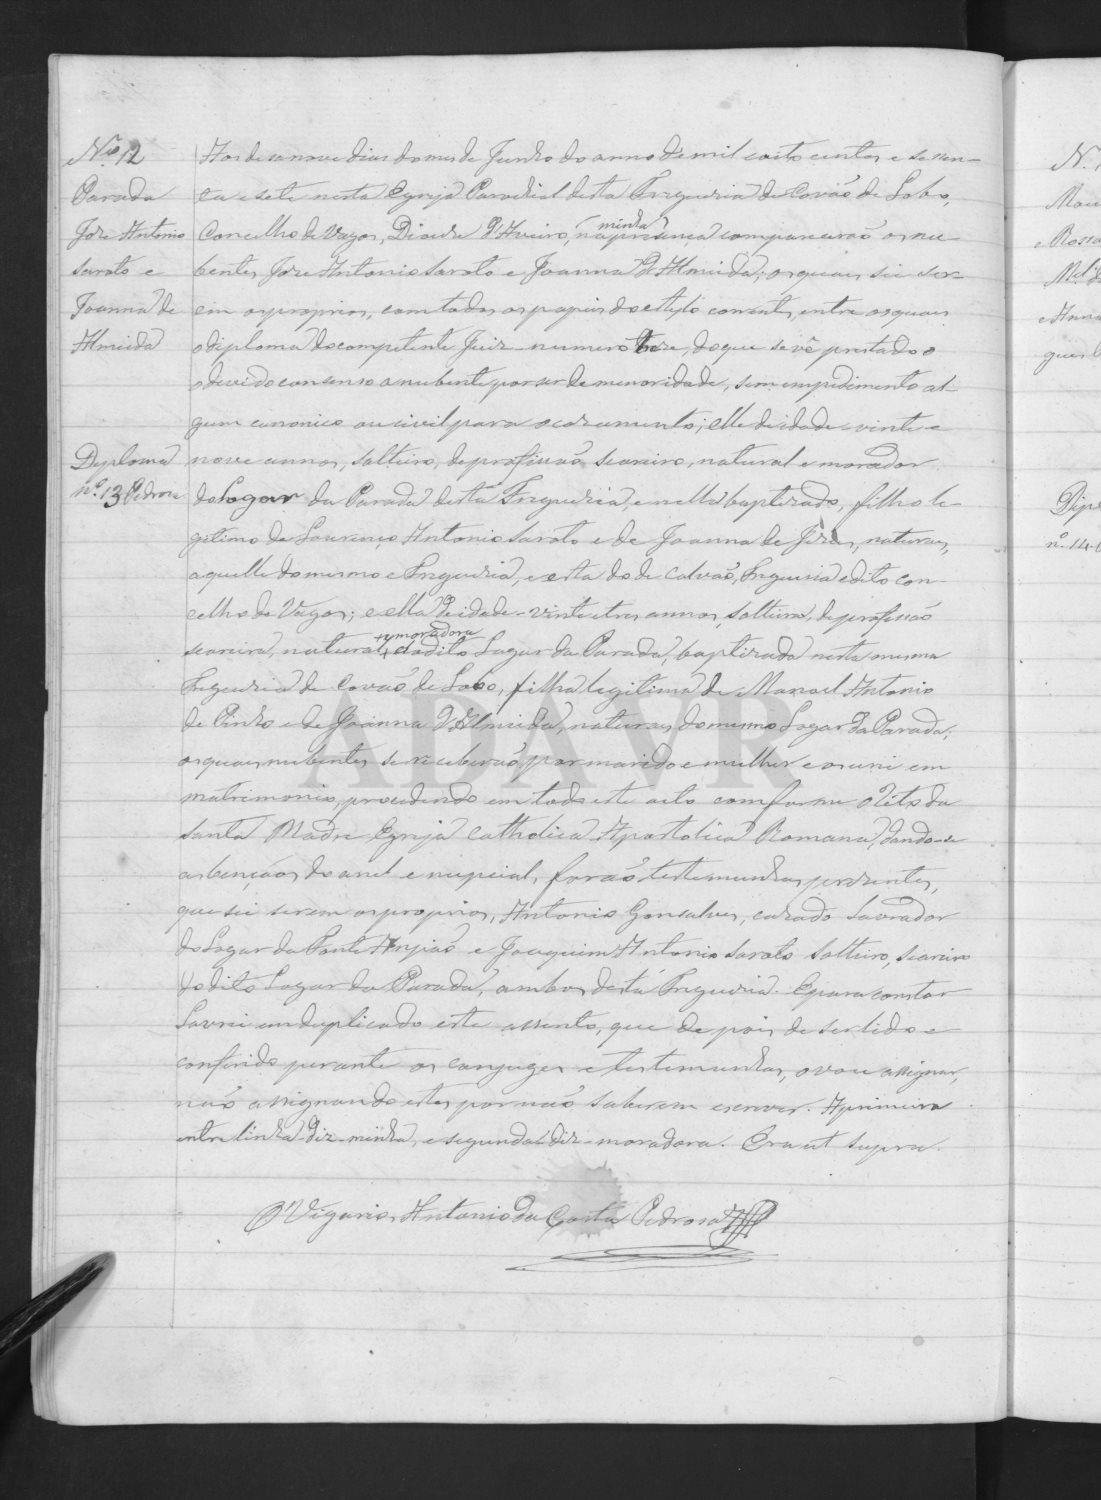 Nº 12
Parada
José Antonio
Sarato e
Joanna de
Almeida
Diploma
nº 13 Pedrosa
Aos desanove dias do mes de Junho do anno de mil oito centos e sessen-
ta e sete nesta Egreja Parochial desta Freguezia de Covão de Lobo,
Concelho de Vagos, Diocese d'Aveiro, na minha presença comparecerão os nu-
bentes José Antonio Sarato e Joanna d'Almeida; os quaes sei ser-
em os proprios, com todos os papeis do estylo corrente, entre os quaes
o diploma do competente Juiz numero treze, do que se vê prestado o
o devido consenso a nubente por ser de menoridade, sem impedimento al-
gum canonico ou civil para o casamento; elle de idade vinte e
nove annos, solteiro, de profissão seareiro, natural e morador
do Logar da Parada desta Freguezia, e nella baptizado, filho le-
gitimo de Lourenço Antonio Sarato e de Joanna de Jezus, naturaes,
aquelle da mesma Freguezia, e esta do de Calvão, Freguezia e dito con-
celho de Vagos; e ella de idade vinte e tres annos, solteira, de profissão
seareira, natural e moradora do dito Lugar da Parada, baptizada nesta mesma
Freguezia de Covão de Lobo, filha legitima de Manoel Antonio
de Pinho e de Joanna d'Almeida, naturaes do mesmo Logar da Parada;
os quaes nubentes se receberão por marido e mulher e os uni em
matrimonio, procedendo em todo este acto conforme o Rito da
Santa Madre Egreja Catholica Apostolica Romana, dando-se
as benções do anel e nupcial, forão testemunhas prezentes,
que sei serem os proprios, Antonio Gonsalves, cazado Lavrador
do Logar da Ponte e Joaquim Antonio Sarato solteiro, seareiro
do dito Lugar da Parada, ambos desta Freguezia. E para constar
Lavrei em duplicado este assento, que depois de ser lido e
conferido perante os conjuges e testemunhas, o vou assignar,
não assignando estes por não saberem escrever. A primeira
entre linha diz - minha, e segunda diz - moradora. Era ut supra.
O Vigario, Antonio da Costa Pedrosa
ADAVR